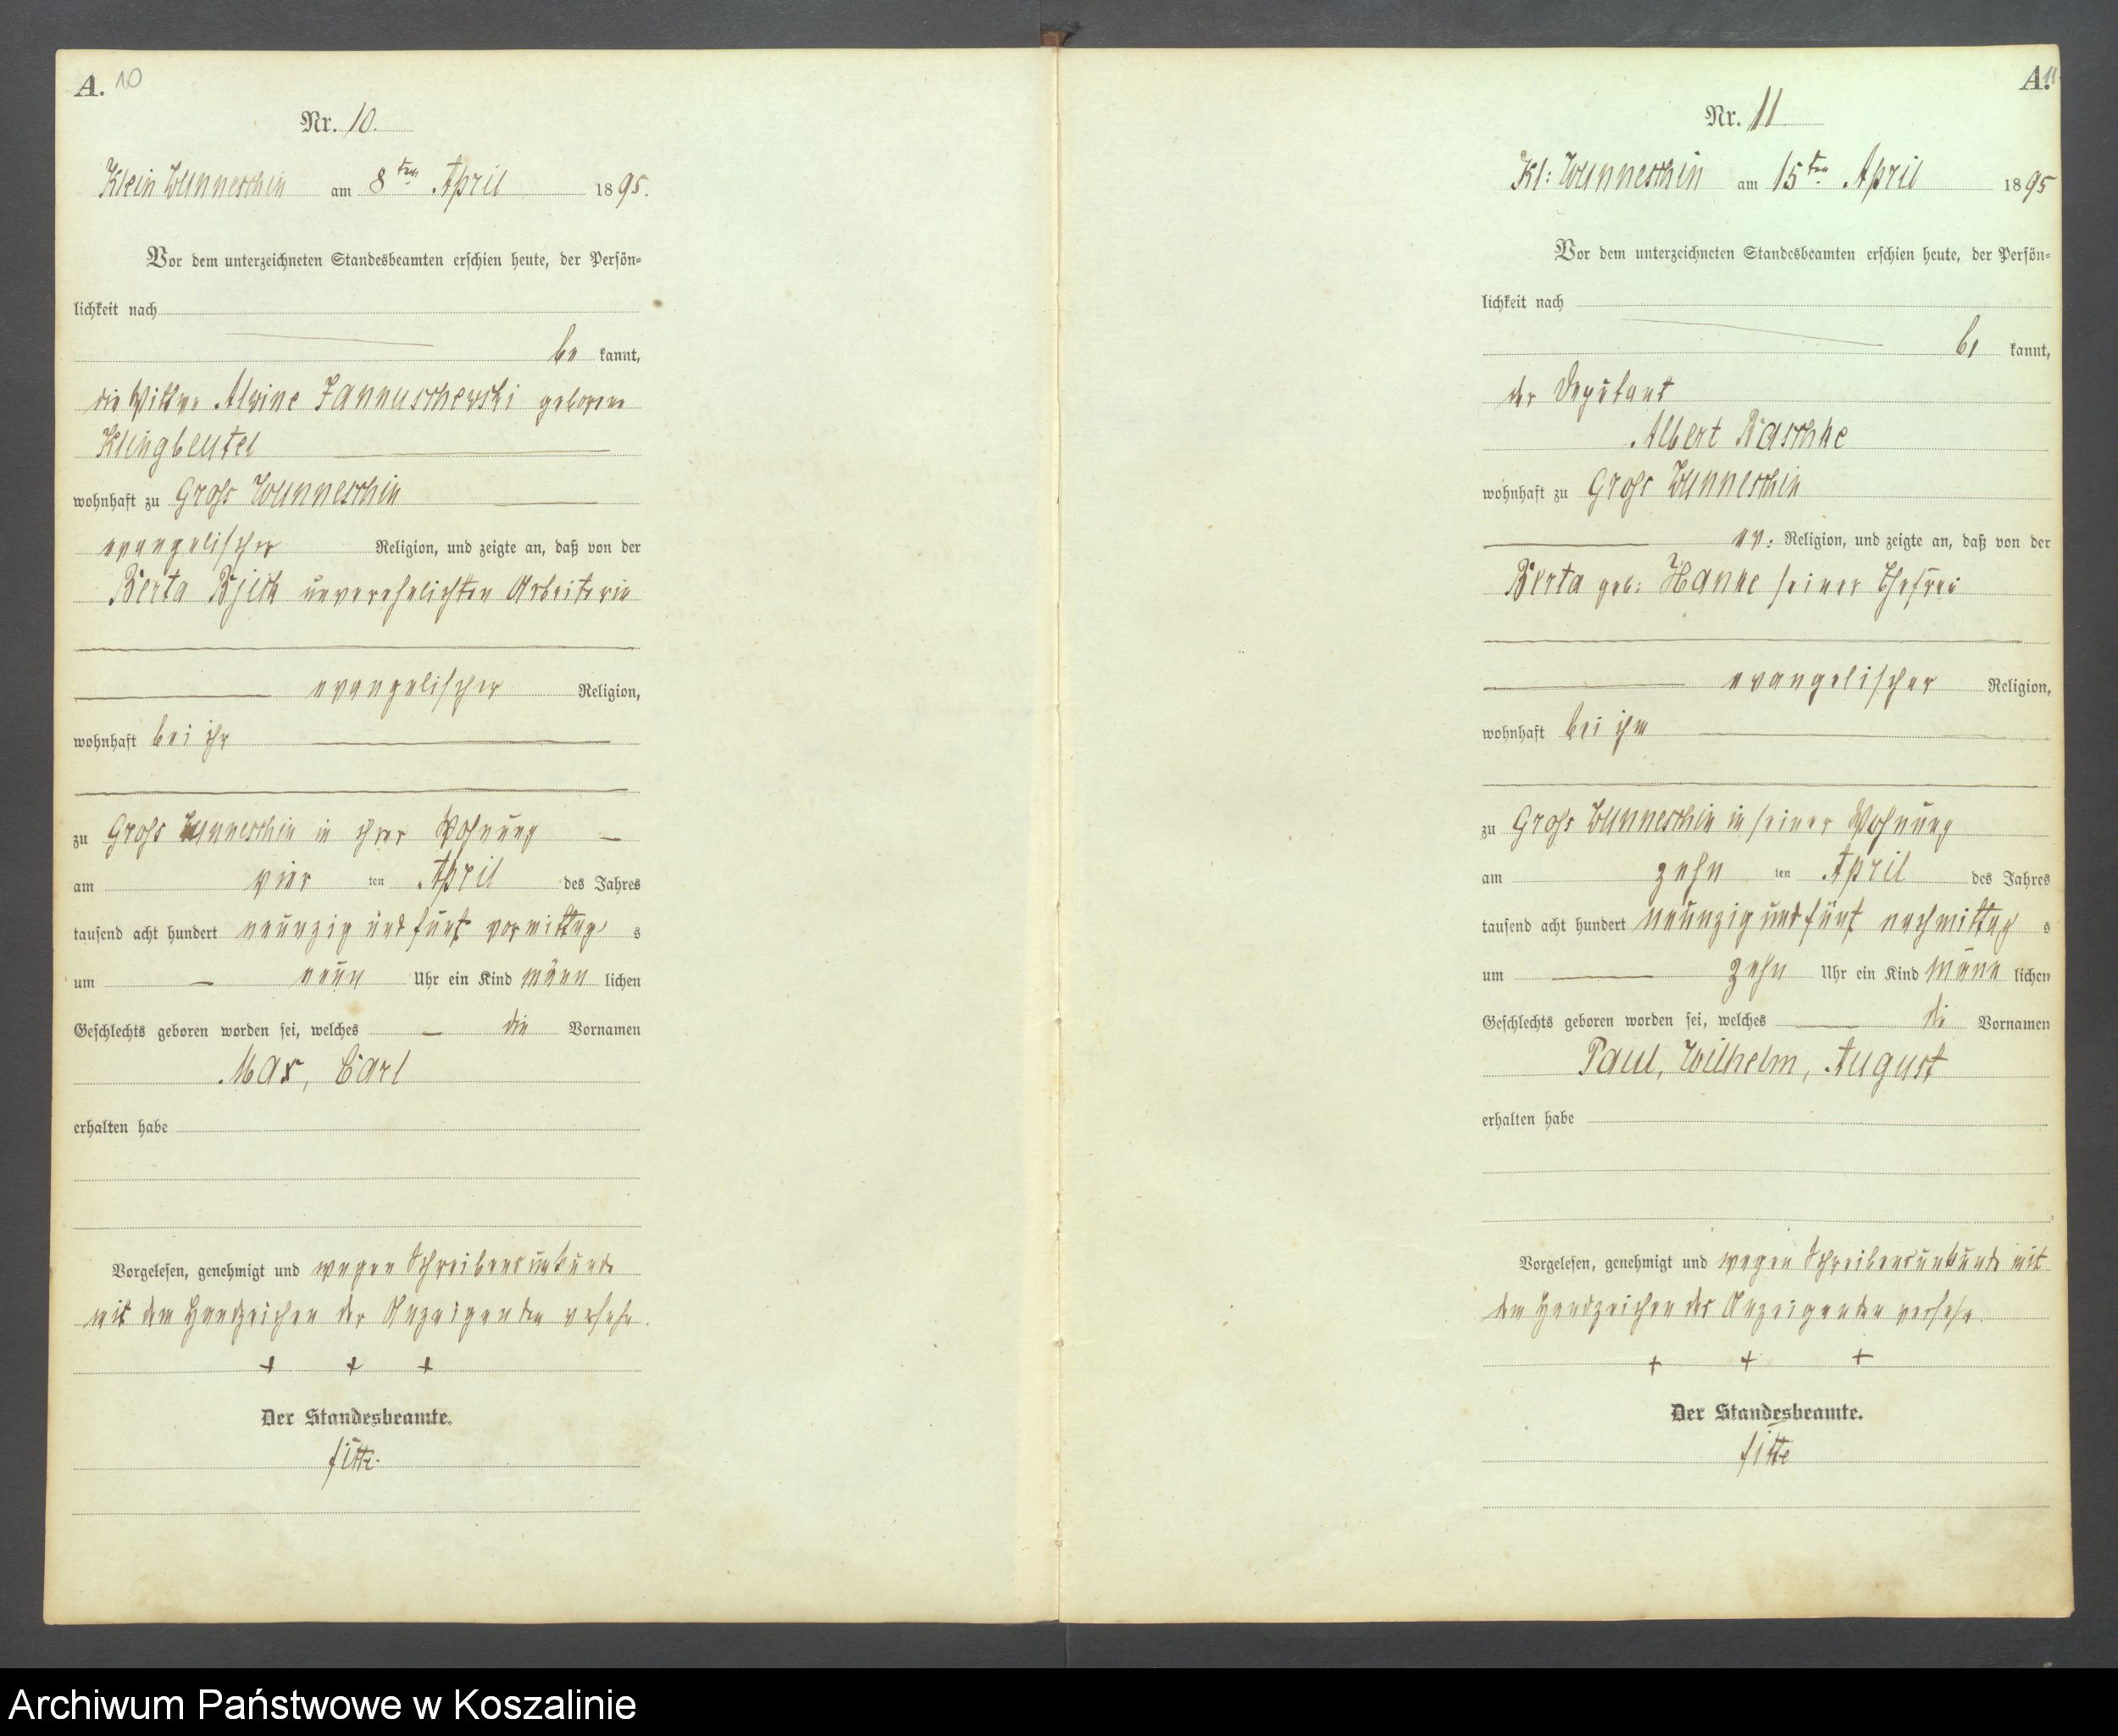 A. 10
Nr. 10.
Klein Wunneschin am 8ten April 1895.
Vor dem unterzeichneten Standesbeamten erschien heute, der Persön-
lichkeit nach
be kannt,
die Wittwe Alvine Jannuschewski geborene
Klingbeutel
wohnhaft zu Gross Wunneschin
evangelischer Religion, und zeigte an, daß von der
Berta unverehelichten Arbeiterin
evangelischer Religion,
wohnhaft bei ihr
zu Gross Wunneschin in ihrer Wohnung
am vier ten April des Jahres
tausend acht hundert neunzig und fünf vormittag s
um neun Uhr ein Kind männ lichen
Geschlechts geboren worden sei, welches die Vornamen
Max, Carl
erhalten habe
Vorgelesen, genehmigt und wegen Schreibensunkunde
mit dem Handzeichen der Anzeigenden versehn.
+ + +
Der Standesbeamte.
A. 11
Nr. 11
Kl: Wunneschin am 15ten April 1895
Vor dem unterzeichneten Standesbeamten erschien heute, der Persön-
lichkeit nach
be kannt,
der Deputant
Albert Raschke
wohnhaft zu Gross Wunneschin
ev: Religion, und zeigte an, daß von der
Berta geb: Hanke seiner Ehefrau
evangelischer Religion,
wohnhaft bei ihm
zu Gross Wunneschin in seiner Wohnung
am zehn ten April des Jahres
tausend acht hundert neunzig und fünf nachmittag s
um zehn Uhr ein Kind männ lichen
Geschlechts geboren worden sei, welches die Vornamen
Paul, Wilhelm, August
erhalten habe
Vorgelesen, genehmigt und wegen Schreibensunkunde mit
dem Handzeichen des Anzeigenden versehn.
+ + +
Der Standesbeamte.
Archiwum Państwowe w Koszalinie